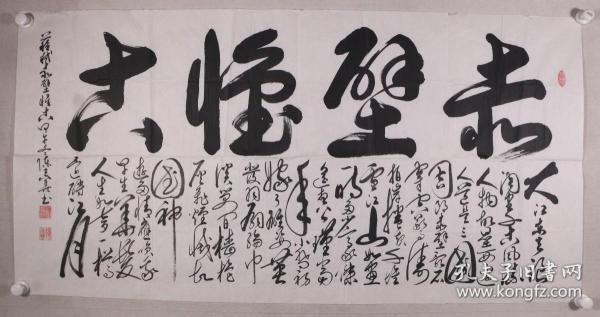 赤壁懷古
大江东去浪
淘尽千古风流
人物故垒西边
人道是三国
周郎赤壁乱石
穿空惊涛
拍岸捲起千堆
雪江山如画
一时多少豪杰
遥想公瑾当
年小乔初
嫁了雄姿英
发羽扇纶巾
谈笑间樯橹
灰飞烟灭故
国神
游多情应笑我
早生华发
人生如梦一樽
还酹江月
苏轼赤壁怀古
书
孔夫子旧书网
www.kongfz.com